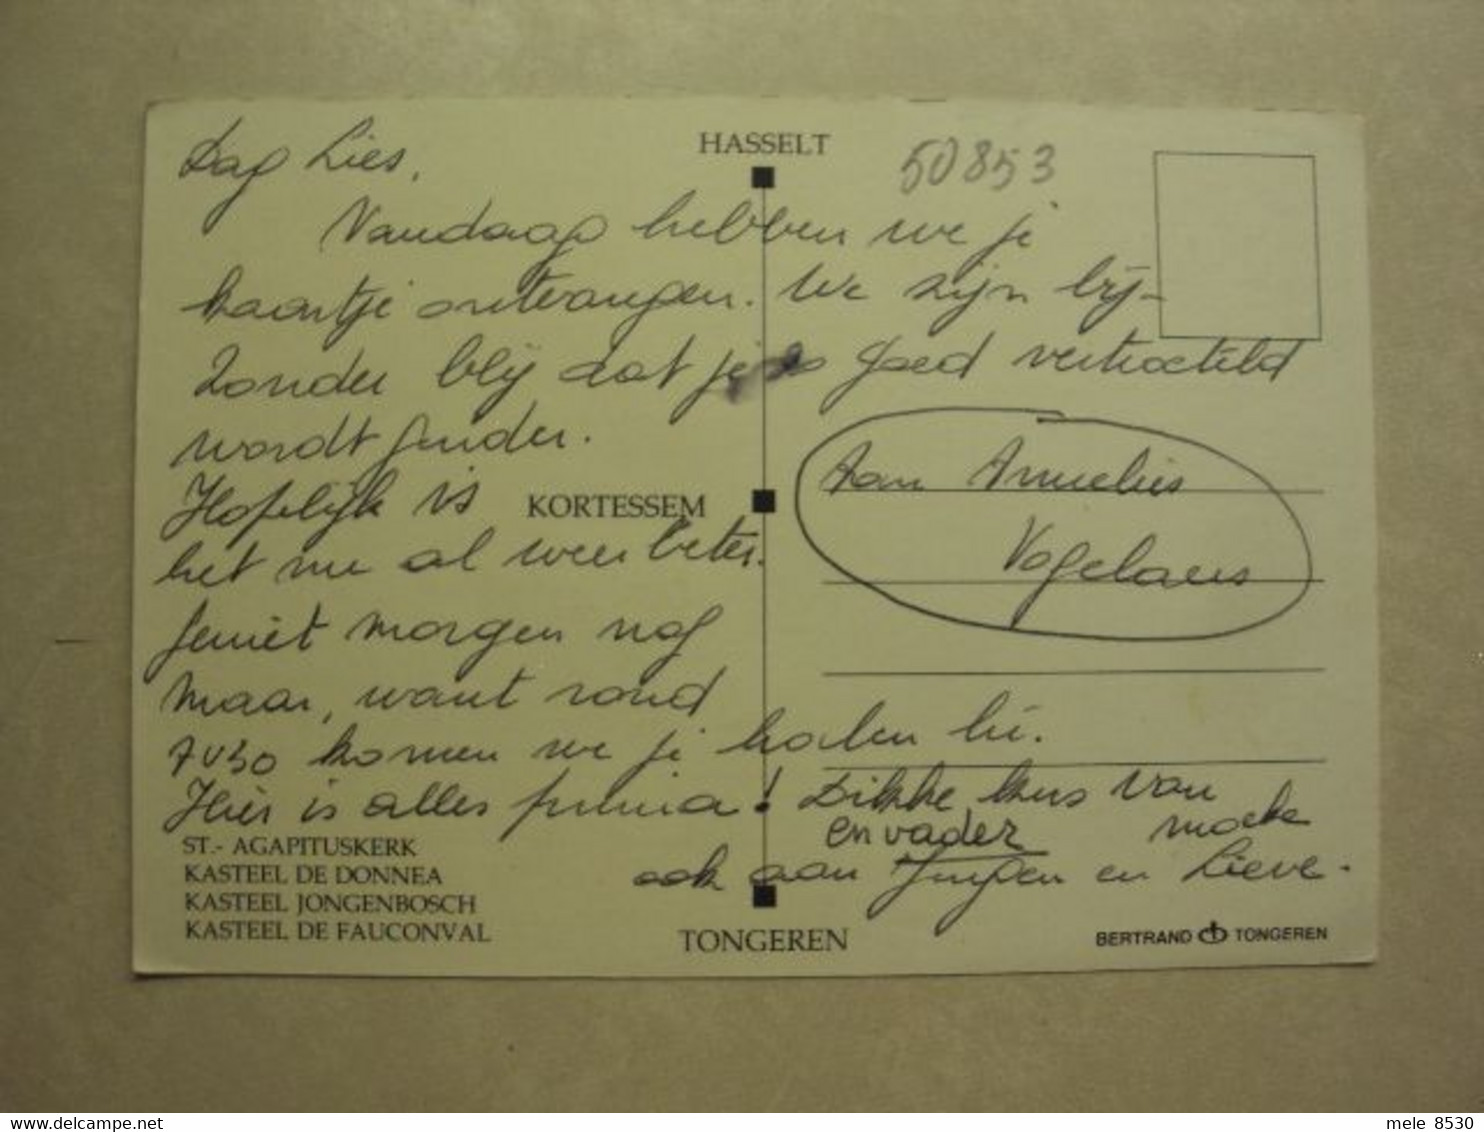 HASSELT
50853
Dag Lies,
Vandaag hebben we je
kaartje ontvangen. We zijn bij-
zonder blij dat je zo goed vertroeteld
wordt ginder.
Hopelijk is
KORTESSEM
het nu al weer beter.
Geniet morgen nog
maar, want rond
7u30 komen we je halen hé.
Hier is alles prima! Dikke kus van
moeke
en vader
ook aan Jurgen en Lieve.
Aan Annelies
Vogelaers
ST.- AGAPITUSKERK
KASTEEL DE DONNEA
KASTEEL JONGENBOSCH
KASTEEL DE FAUCONVAL
TONGEREN
BERTRAND TONGEREN
mele 8530